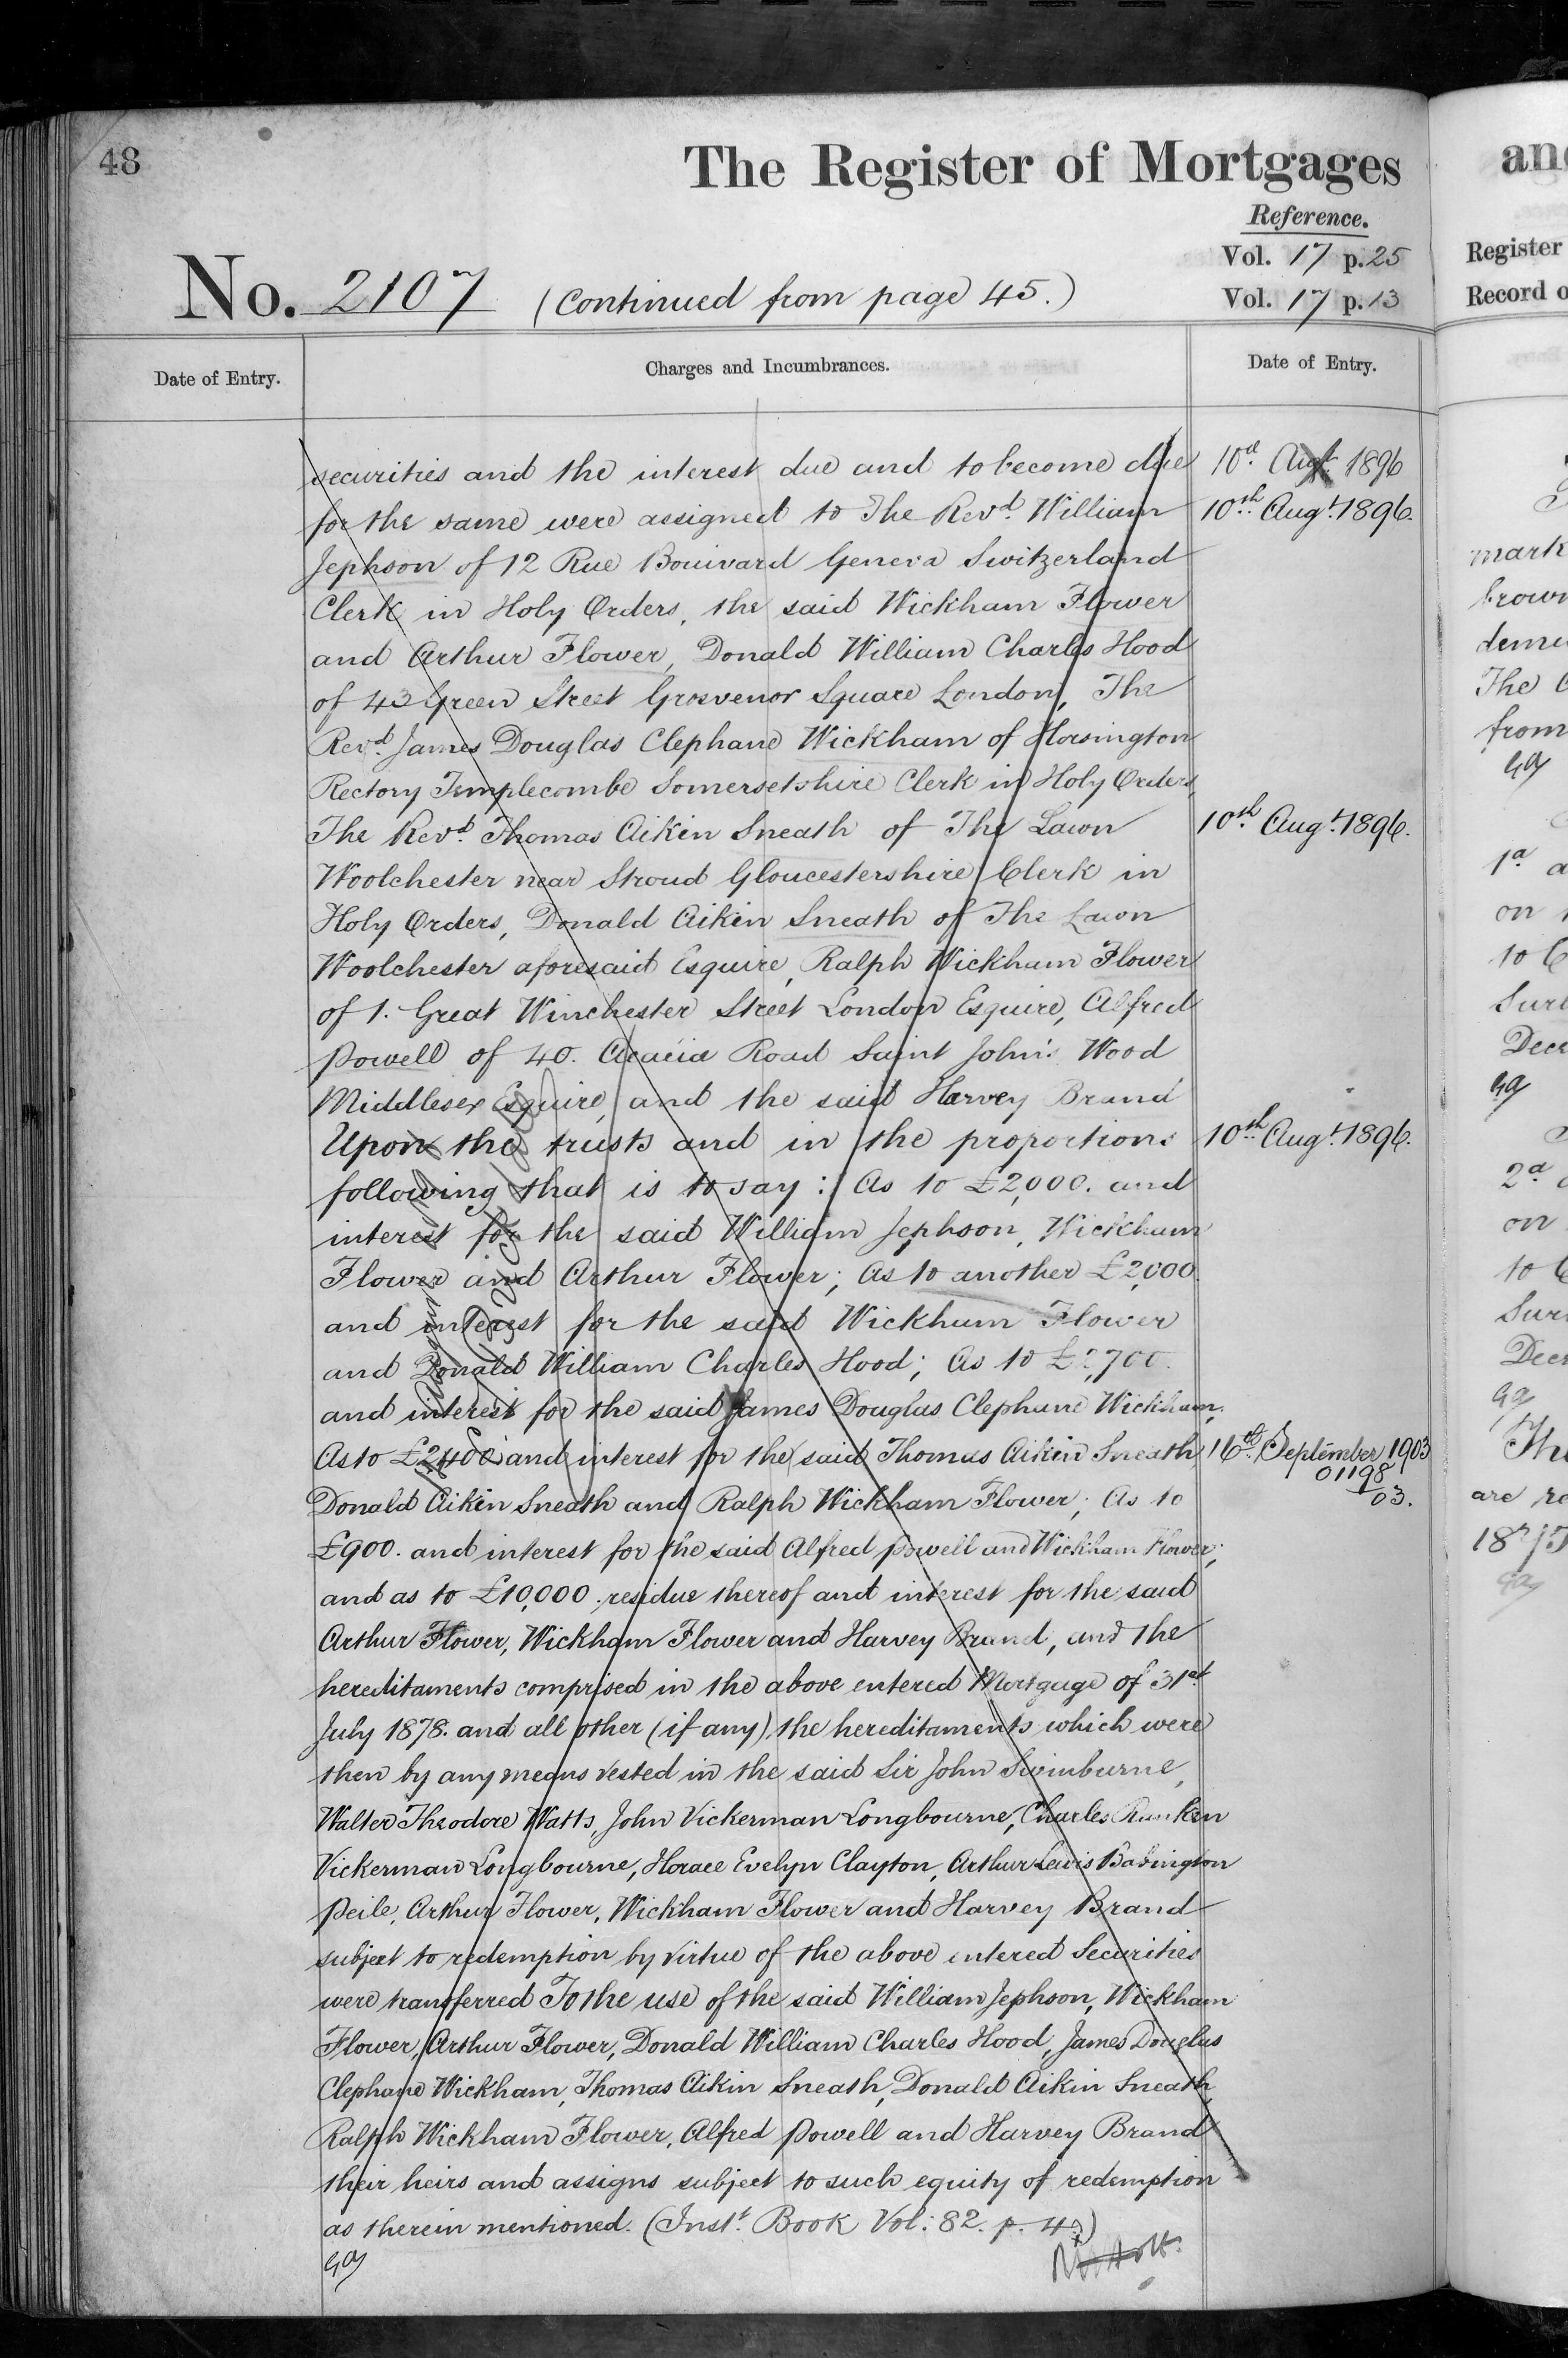 48
The Register of Mortgages
Reference.
Vol. 17 p. 25
No. 2107 (continued from page 45.)
Vol. 17 p. 13
Date of Entry.
Charges and Incumbrances.
Date of Entry.
securities and the interest due and to become due
10th Augt. 1896
for the same were assigned to The Revd. William
10th Augt. 1896.
Jephson of 12 Rue Bonivard Geneva Switzerland
Clerk in Holy Orders, the said Wickham Flower
and Arthur Flower, Donald William Charles Hood
of 43 Green Street Grosvenor Square London, The
Revd. James Douglas Clephane Wickham of Horsington
Rectory Templecombe Somersetshire Clerk in Holy Orders,
The Revd. Thomas Aikin Sneath of The Lawn
10th Augt. 1896.
Woolchester near Stroud Gloucestershire Clerk in
Holy Orders, Donald Aikin Sneath of The Lawn
Woolchester aforesaid Esquire, Ralph Wickham Flower
of 1. Great Winchester Street London Esquire, Alfred
Powell of 40. Acacia Road Saint John's Wood
Middlesex Esquire, and the said Harvey Brand
Upon the trusts and in the proportions
10th Augt. 1896.
following that is to say: As to £2,000. and
interest for the said William Jephson, Wickham
Flower and Arthur Flower; As to another £2,000.
and interest for the said Wickham Flower
and Donald William Charles Hood; As to £2,700.
and interest for the said James Douglas Clephane Wickham,
As to £2400 and interest for the said Thomas Aikin Sneath
16th September 1903
01198
03.
Donald Aikin Sneath and Ralph Wickham Flower; As to
£900. and interest for the said Alfred Powell and Wickham Flower;
and as to £10,000. residue thereof and interest for the said
Arthur Flower, Wickham Flower and Harvey Brand, and the
hereditaments comprised in the above entered Mortgage of 31st
July 1878. and all other (if any) the hereditaments which were
then by any means vested in the said Sir John Swinburne,
Walter Theodore Watts, John Vickerman Longbourne, Charles Ranken
Vickerman Longbourne, Horace Evelyn Clayton, Arthur Lewis Babington
Peile, Arthur Flower, Wickham Flower and Harvey Brand
subject to redemption by virtue of the above entered Securities
were transferred To the use of the said William Jephson, Wickham
Flower, Arthur Flower, Donald William Charles Hood, James Douglas
Clephane Wickham, Thomas Aikin Sneath, Donald Aikin Sneath,
Ralph Wickham Flower, Alfred Powell and Harvey Brand
their heirs and assigns subject to such equity of redemption
as therein mentioned. (Inst. Book Vol: 82. p. 4)
Register
Record o
mark
brown
The
from
1a a
on
to
Surr
Dece
2a
on
to
Surr
Dece
The
are re